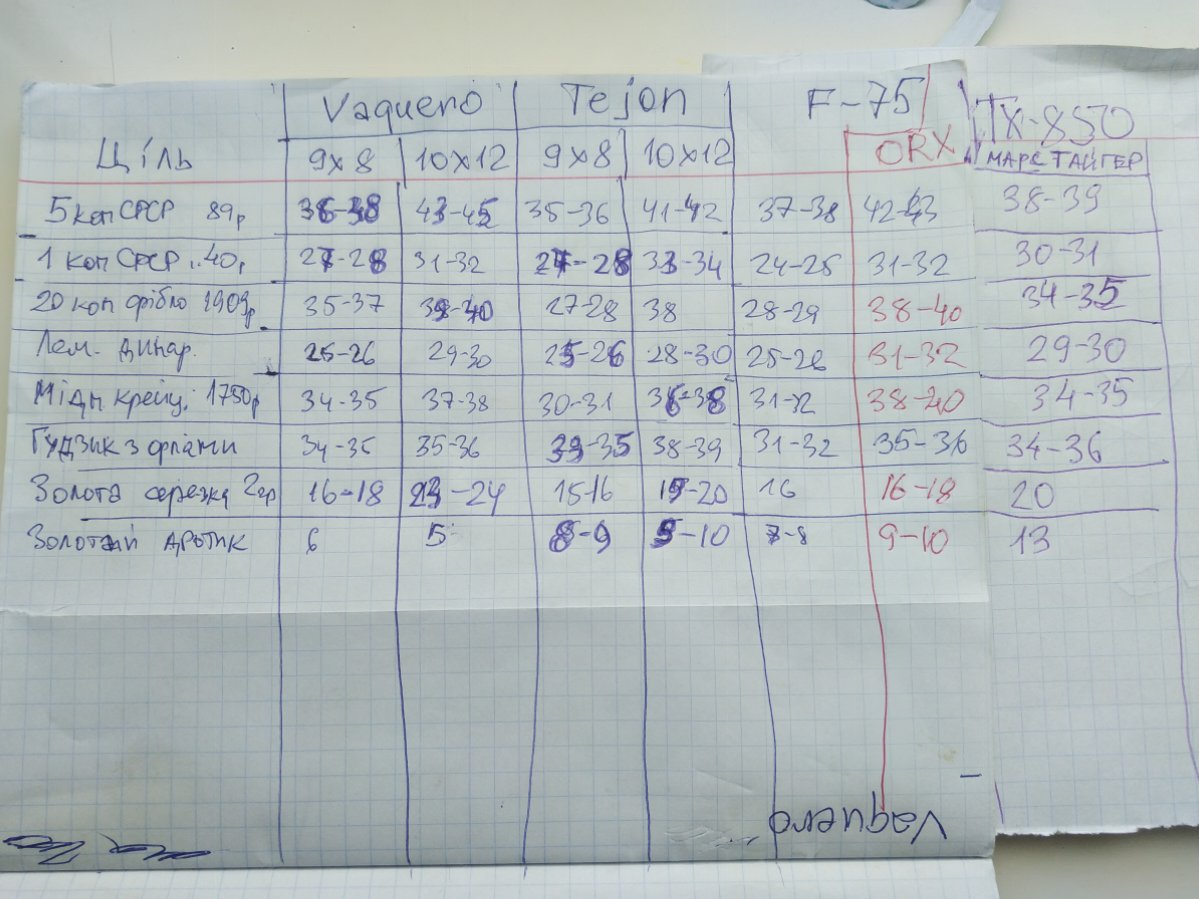 Vaquero Tejon F-75 TX-850
Ціль 9x8 10x12 9x8 10x12 ORX МАРС ТАЙГЕР
5 коп СРСР 89р 36-38 43-45 35-36 41-42 37-38 42-43 38-39
1 коп СРСР ..40р 27-28 31-32 27-28 33-34 24-25 31-32 30-31
20 коп срібло 1909р 35-37 39-40 27-28 38 28-29 38-40 34-35
Лем. динар. 25-26 29-30 25-26 28-30 25-26 31-32 29-30
Мідн крейц. 17 34-35 37-38 30-31 36-38 31-32 38-40 34-35
Гудзик з орлами 34-35 35-36 33-35 38-39 31-32 35-36 34-36
Золота сережка 2гр 16-18 23-24 15-16 19-20 16 16-18 20
Золотий дротик 6 5 8-9 9-10 7-8 9-10 13
Vaquero